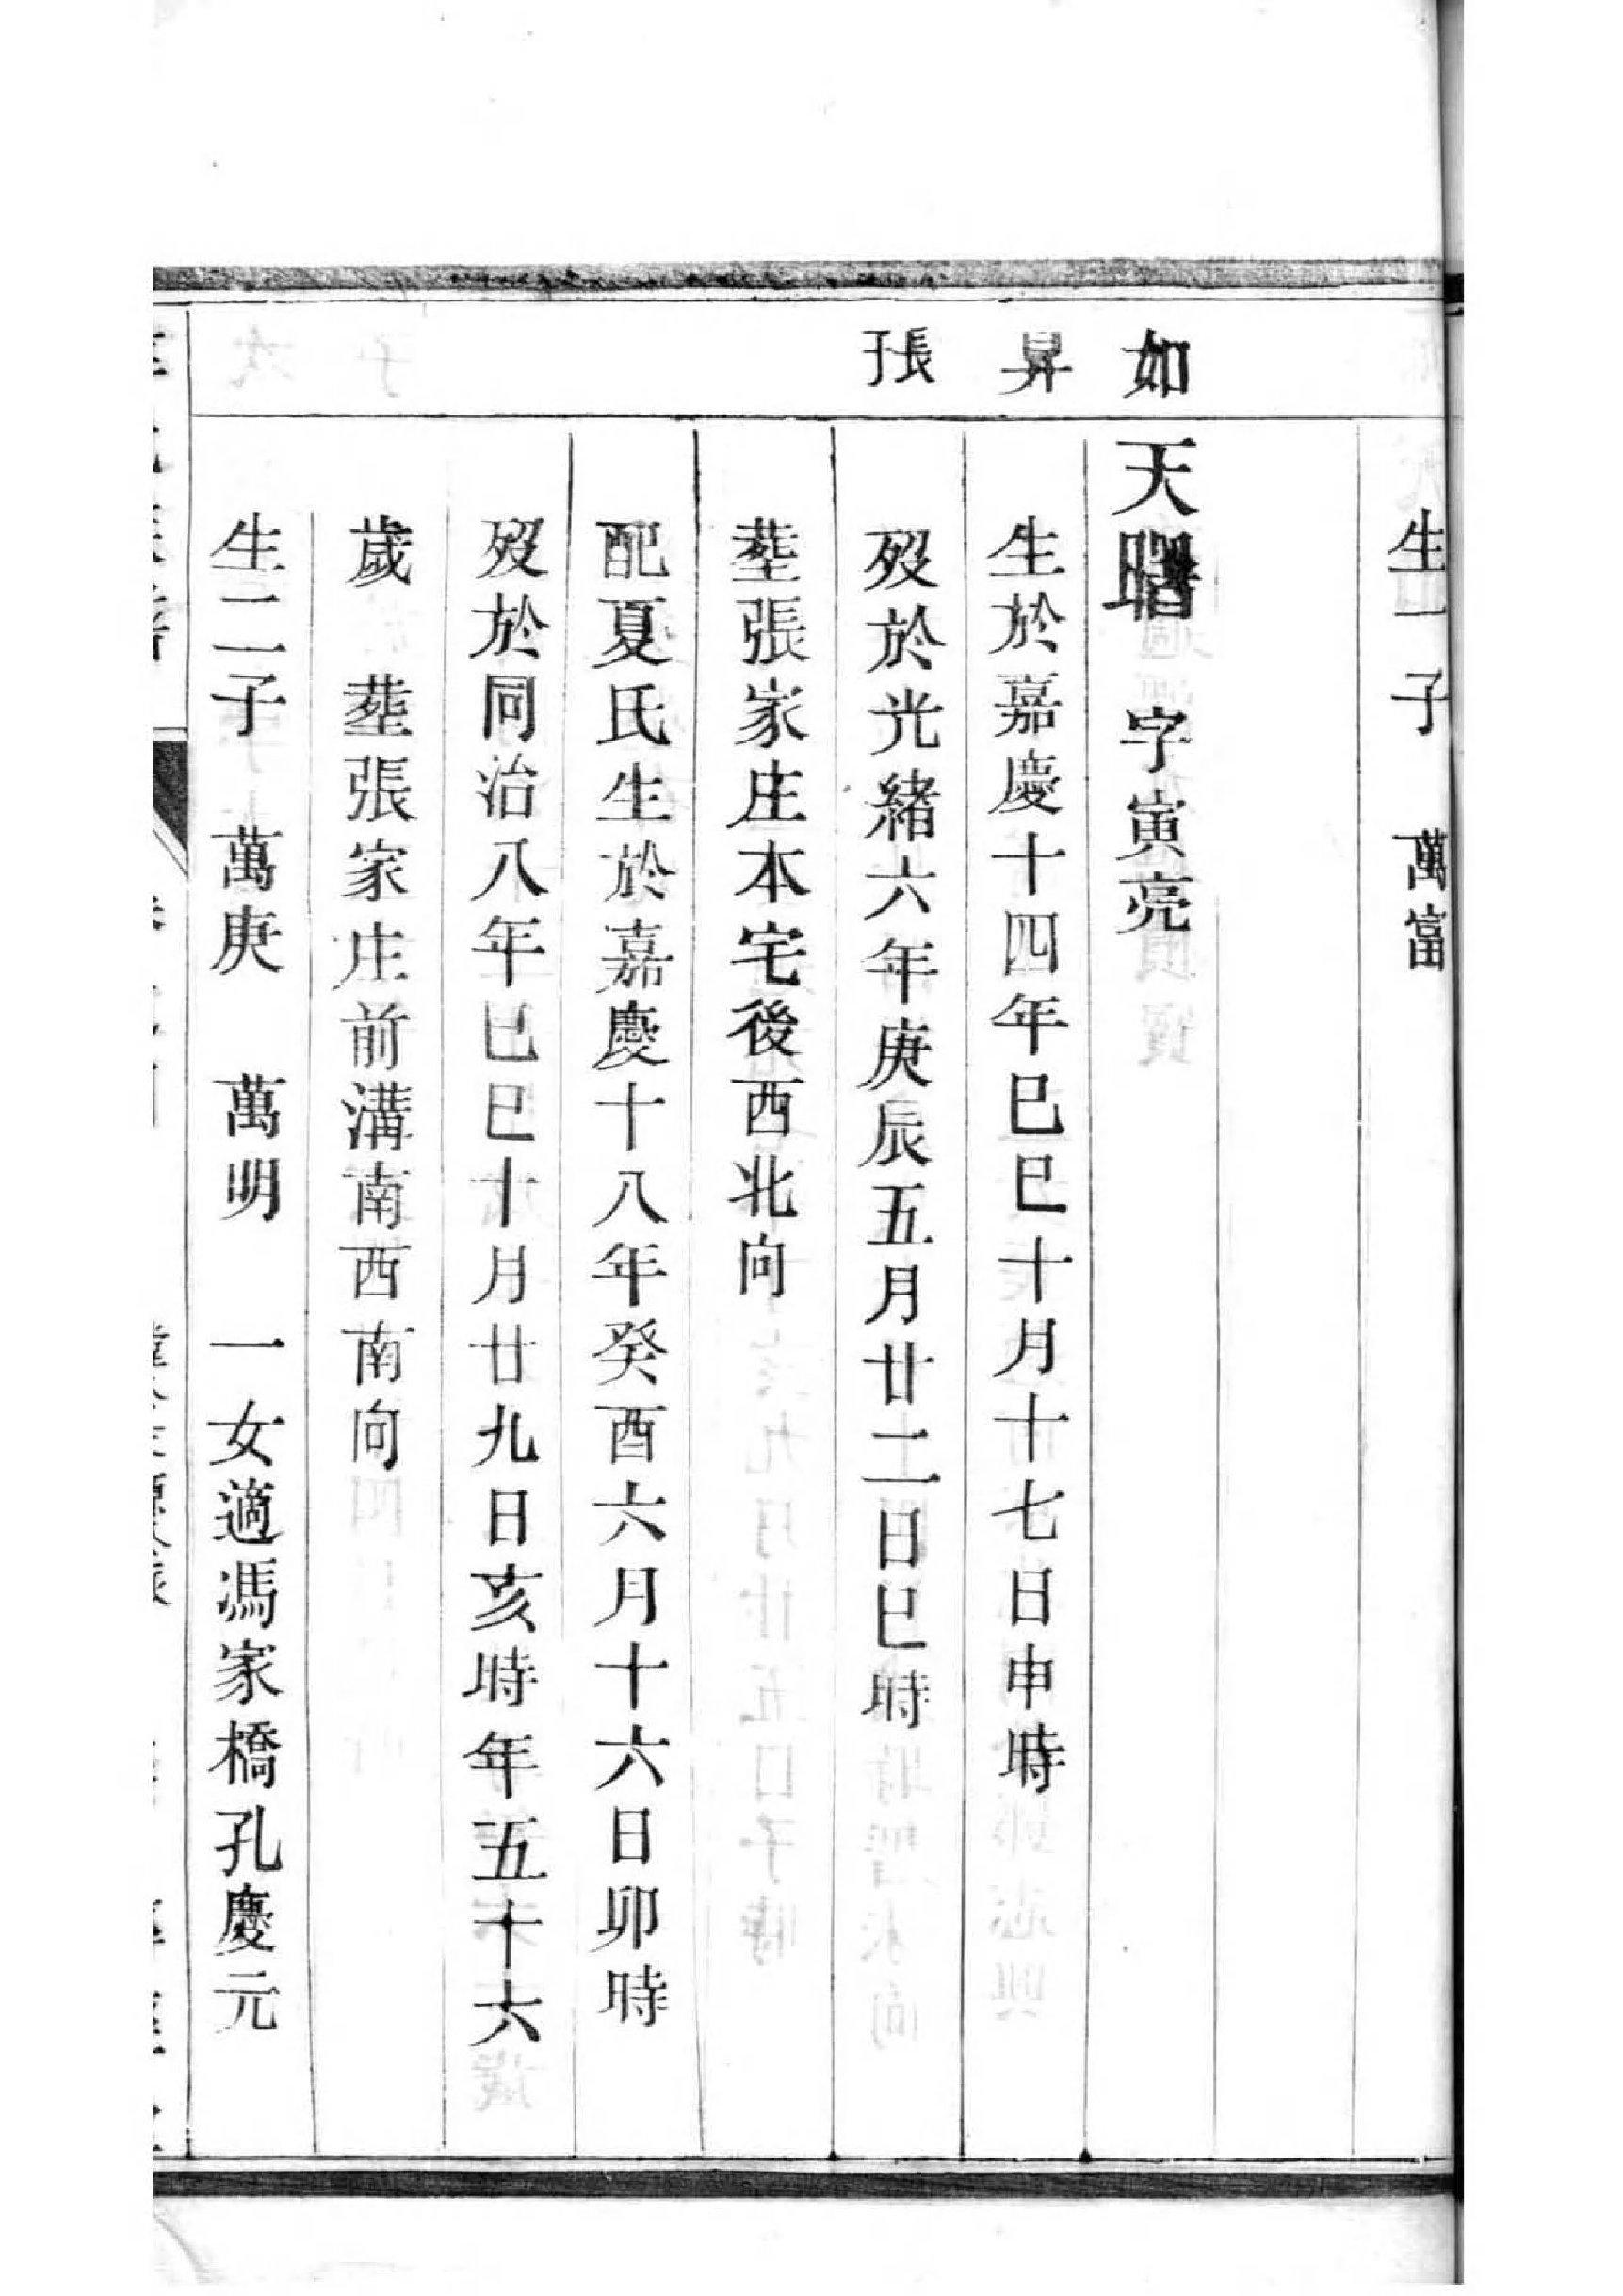 生一子　萬富
如　天曙　字寅亮
昇　生於嘉慶十四年巳巳十月十七日申時
長子　歿於光緒六年庚辰五月廿二日巳時
塟張家庄本宅後西北向
配夏氏生於嘉慶十八年癸酉六月十六日卯時
歿於同治八年巳巳十月廿九日亥時年五十六
歲　塟張家庄前溝南西南向
生二子　萬庚　萬明　一女適馮家橋孔慶元